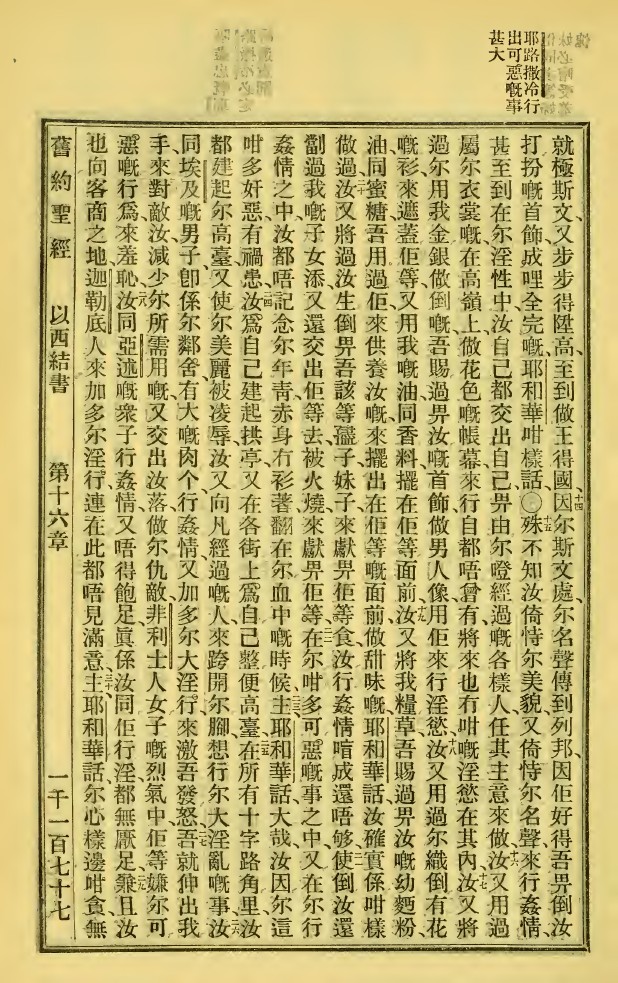 耶路撒冷行
出可惡嘅事
甚大
就極斯文、又步步得陞高、至到做王得國、十四因尔斯文處、尔名聲傳到列邦、因佢好得吾畀倒汝
打扮嘅首飾成哩全完嘅、耶和華咁樣話、〇十五殊不知汝倚恃尔美貌、又倚恃尔名聲、來行姦情、
甚至到在尔淫性中、汝自己都交出自己畀由尔嶝經過嘅各樣人、任其主意來做、十六汝又用過
屬尔衣裳嘅、在高嶺上、做花色嘅帳幕、來行自都唔曾有、將來也有咁嘅淫慾在其內、十七汝又將
過尔用我金銀做倒嘅吾賜過畀汝嘅首飾、做男人像、用佢來行淫慾、十八汝又用過尔織倒有花
嘅衫、來遮蓋佢等、又用我嘅油同香料、擺在佢等面前、十九汝又將我糧草吾賜過畀汝嘅幼麵粉、
油同蜜糖、吾用過佢來供養汝嘅、來擺出在佢等嘅面前、做甜味嘅、耶和華話、汝確實係咁樣
做過、二十汝又將過汝生倒畀吾該等孺子妹子、來獻畀佢等食、汝行姦情喧成還唔够、使倒汝還
劏過我嘅子女、添又還交出佢等去被火燒、來獻畀佢等、在尔咁多可惡嘅事之中、又在尔行
姦情之中、汝都唔記念尔年靑赤身冇衫著、翻在尔血中嘅時候、主耶和華話、大哉汝因尔這
咁多奸惡、有禍患、汝爲自己建起拱亭、又在各街上爲自己整便高臺、在所有十字路角里、汝
都建起尔高臺、又使尔美麗被凌辱、汝又向凡經過嘅人、來跨開尔腳、想行尔大淫亂嘅事、汝
同埃及嘅男子、卽係尔鄰舍有大嘅肉个行姦情、又加多尔大淫行、來激吾發怒、吾就伸出我
手來對敵汝、減少尔所需用嘅、又交出汝落做尔仇敵非利士人女子嘅烈氣中、佢等嫌尔可
惡嘅行爲來羞恥、汝同亞述嘅衆子行姦情、又唔得飽足、眞係汝同佢行淫、都無厭足、兼且汝
也向客商之地迦勒底人來加多尔淫行、連在此都唔見滿意、主耶和華話、尔心樣邊咁貪無
舊約聖經 以西結書 第十六章 一千一百七十七